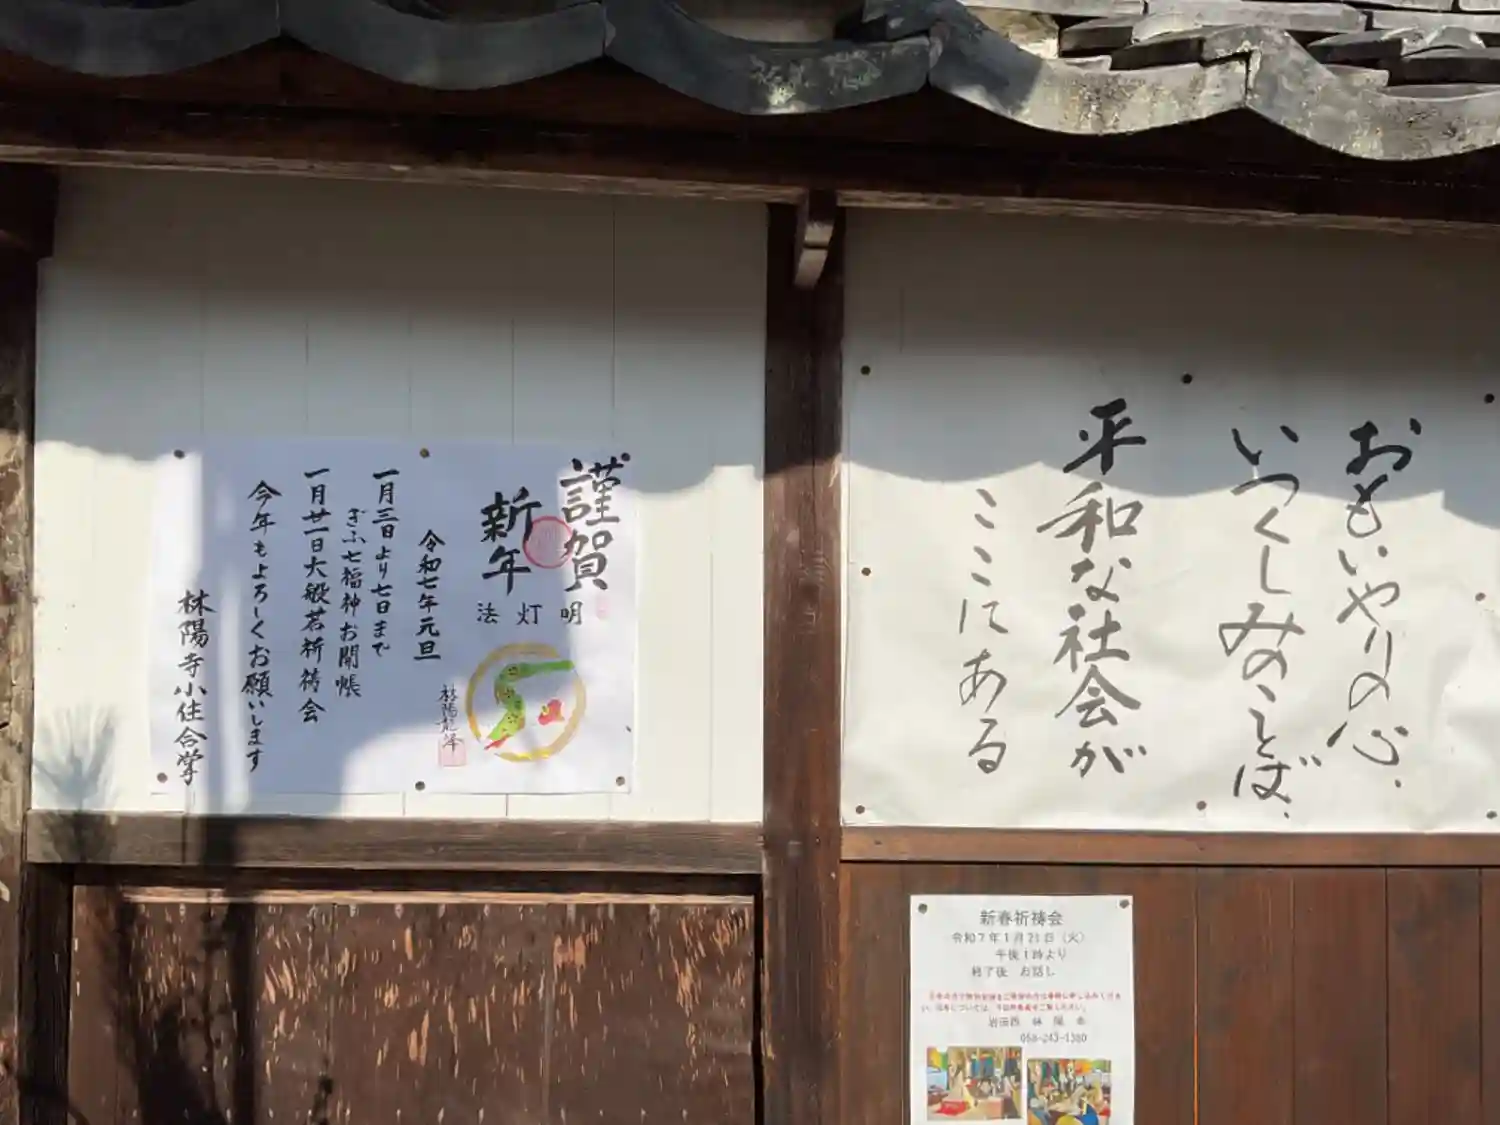 おもいやりの心、
いつくしみのことば、
平和な社会が
ここにある
謹賀
新年
法灯明
令和七年元旦
一月三日より七日まで
ぎふ七福神お開帳
一月廿一日大般若祈祷会
今年もよろしくお願いします
林陽寺小住合掌
新春祈祷会
令和7年1月21日(火)
午後1時より
終了後 お話し
岩田西 林陽寺
058-243-1380